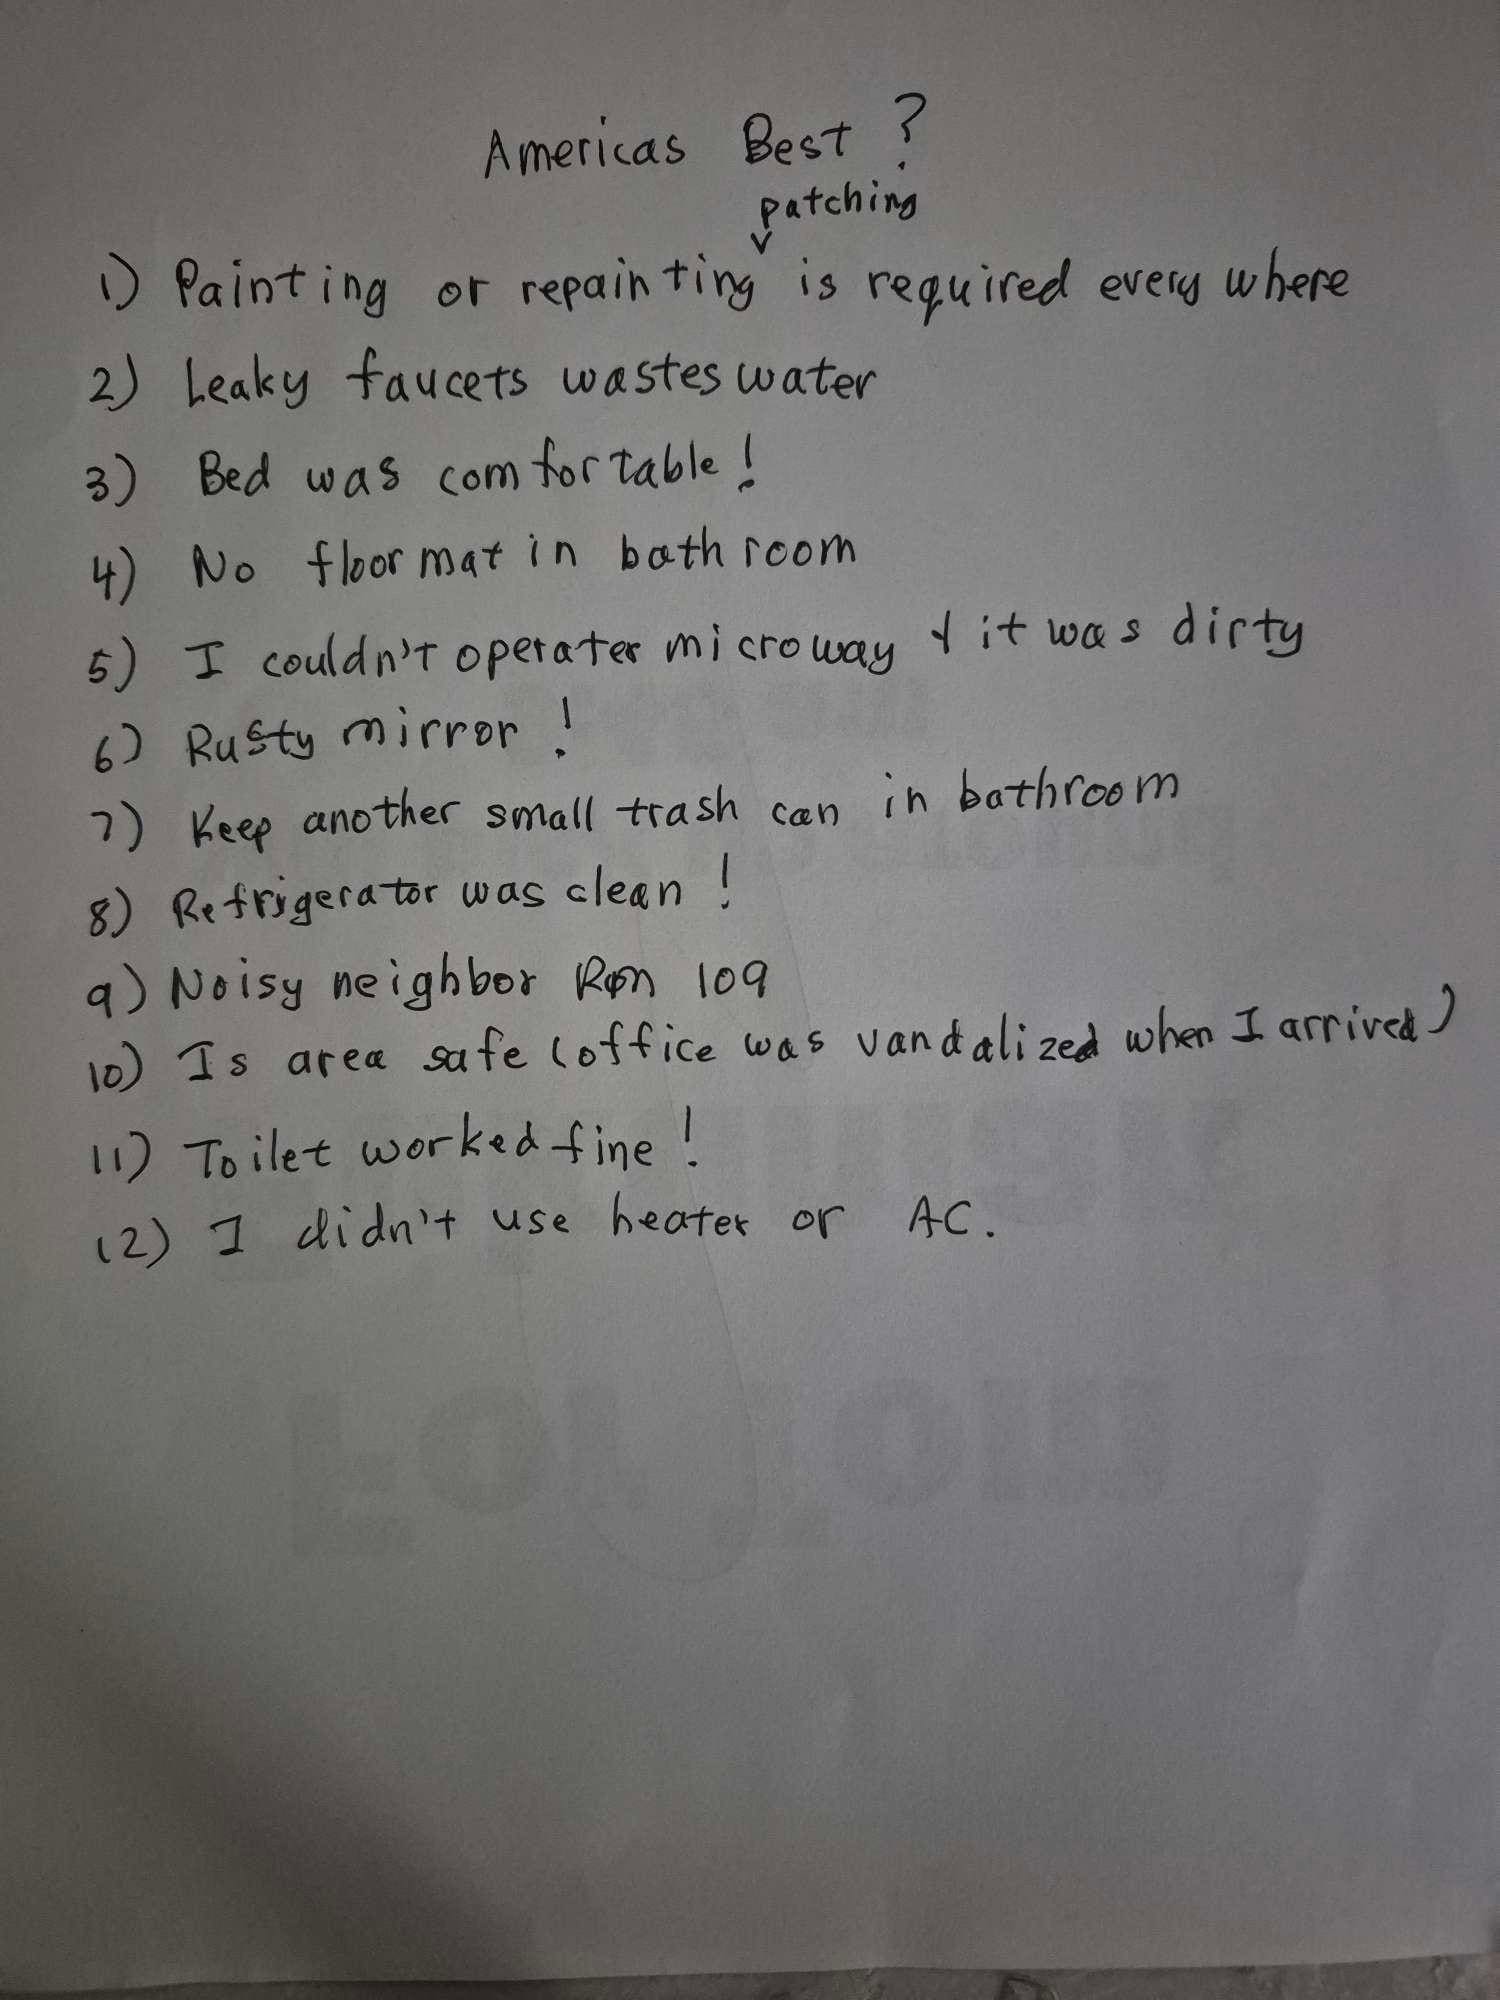 Americas Best ?
patching
1) Painting or repainting is required every where
2) Leaky faucets wastes water
3) Bed was comfortable!
4) No floor mat in bathroom
5) I couldn't operater microway & it was dirty
6) Rusty mirror!
7) Keep another small trash can in bathroom
8) Refrigerator was clean!
9) Noisy neighbor Rm 109
10) Is area safe (office was vandalized when I arrived)
11) Toilet worked fine!
12) I didn't use heater or AC.